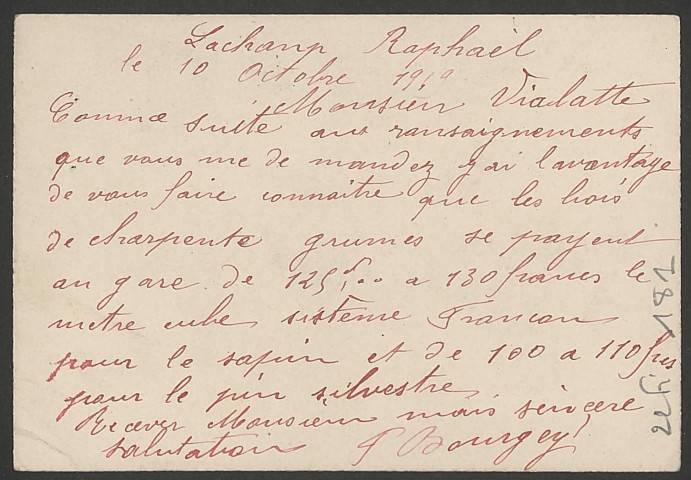 Lachamp Raphaël
le 10 Octobre 1919
Monsieur Vialatte
Comme suite aux ransaignements
que vous me de mandez j'ai l'avantage
de vous faire connaitre que les bois
de charpente grumes se payent
an gare de 125f,00 a 130 francs le
metre cube sistème Francon
pour le sapin et de 100 a 110 frcs
pour le pin silvestre
Recever Monsieur mais sincere
salutation F Bourgey
22 Fi 181